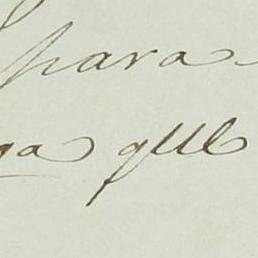 para
ga que